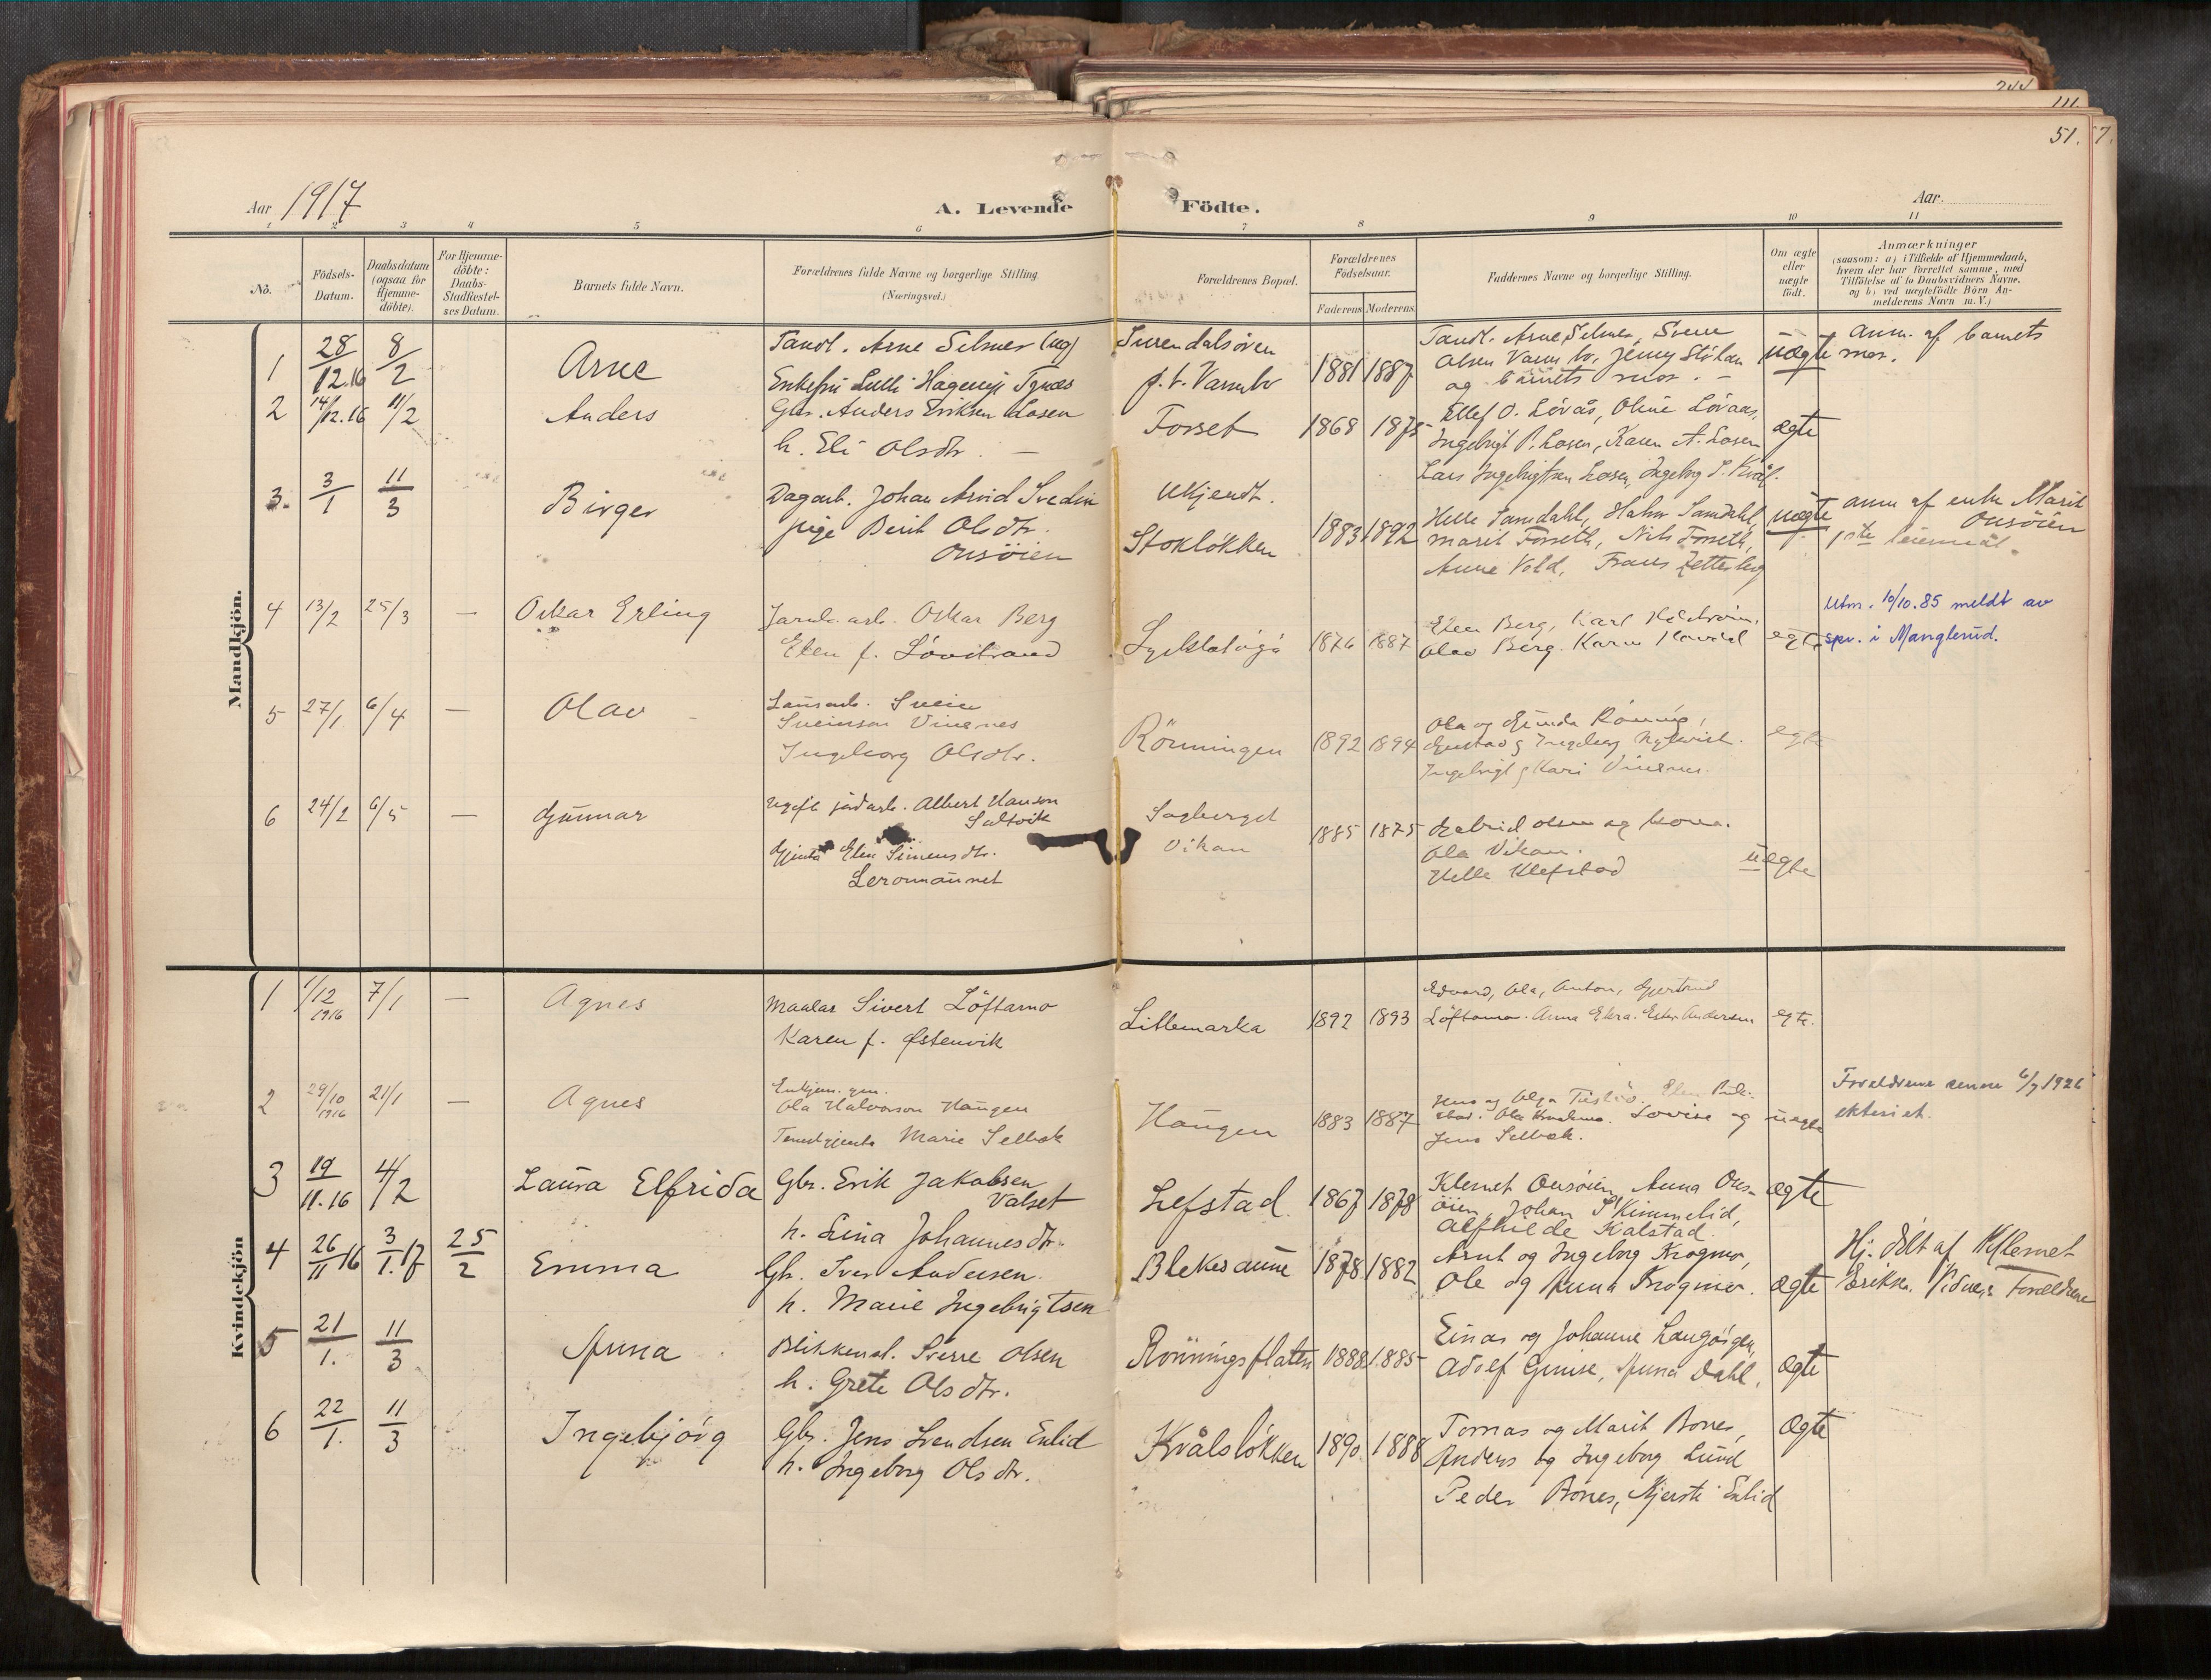 244
111.
51. 7.
Aar 1917
A. Levende Födte.
Aar
1 2 3 4 5 6 7 8 9 10 11
No.
Födsels-
Datum.
Daabsdatum
(ogsaa for
Hjemme-
döbte).
For Hjemme-
döbte:
Daabs-
Stadfæstel-
ses Datum.
Barnets fulde Navn.
Forældrenes fulde Navne og borgerlige Stilling
(Næringsvei.)
Forældrenes Bopæl.
Forældrenes
Födselsaar.
Faderens Moderens
Faddernes Navne og borgerlige Stilling.
Om ægte
eller
uægte
födt.
Anmærkninger
(saasom: a) i Tilfælde af Hjemmedaab,
hvem der har forrettet samme, med
Tilföielse af to Daabsvidners Navne,
og b) ved uægtefödte Börn An-
melderens Navn m. V.)
Mandkjön.
1 28/12.16 8/2 Arne
Tandl. Arne Selmer (ug)
Enkefru Lulli Hagerup
Surendalsøren
p.t. Vannbo
1881 1887
Tandl. Arne Selmer, Svein
Olsen Vannbo, Jenny
og barnets mor. –
uægte
anm. af barnets
mor.
2 14/12.16 11/2 Anders
Gbr. Anders Eriksen Losen
h. Eli Olsdtr. –
Forset
1868 1875
Ellef O. Løvås, Oline Løvaas,
Ingebrigt P. Losen, Karen A. Losen
Lars Ingebrigtsen Losen, Ingebrg S. Kvål.
ægte
3. 3/1 11/3 Birger
Dagarb. Johan Arvid Svedin
pige Berit Olsdtr.
Onsöien
Ukjendt.
Stokløkken
1883 1892
Helle Samdahl, Halvor Samdahl,
Marit Forseth, Nils Forseth,
Anne Vold, Frans Zetterberg
uægte
anm af enke Marit
Onsöien
1ste leiermål.
4 13/2 25/3 – Oskar Erling
Jarnb.arb. Oskar Berg
Elen f. Lövstrand
1876 1887
Elen Berg, Karl
Olav Berg. Karen
egte
Utm. 10/10.85 meldt av
spr. i Manglerud.
5 27/1 6/4 – Olav
Svein
Sveinson Vinsnes
Ingeborg Olsdtr.
Rönningen
1892 1894
Ola og Gunda Rönning,
Gustav og Ingeborg
Ingebrigt og Kari Vinsnes.
egte
6 24/2 6/5 – Gunnar
Ugift jordarb. Albert Hanson
Saltvik
Gjenta Elen Simensdtr.
Leromaunet
Sagberget
Vikan
1885 1875
Gabriel Olsen og kona.
Ola Vikan.
Helle Klefstad
uegte
Kvindekjön
1 1/12 1916 7/1 – Agnes
Maalar Sivert Löftamo
Karen f. Østenvik
Littlemarka
1892 1893
Edvard, Ola, Anton, Gjertrud
Löftamo. Anna Ekra. Ester Andersen
egte.
2 29/10 1916 21/1 – Agnes
Ola Halvorson Haugen
Tenestgjenta Marie Selbæk
Haugen
1883 1887
Lovise og
Jens Selbæk.
uegte
Foreldrene senere 6/7 1926
ekteviet.
3 19/11.16 4/2 Laura Elfrida
Gbr. Erik Jakobsen
Valset
h. Lina Johannesdtr.
Lefstad.
1867 1878
Klemet Onsöien, Anna Ons-
öien, Johan S Kimmelid,
Alfhilde Kalstad.
ægte
4 26/11 16 3/1.17 25/2 Emma
Gbr. Iver Andersen.
h. Marie Ingebrigtsen
Blekesaune
1878 1882
Arnt og Ingeborg Krogmo,
Ole og Anna Krogmo.
ægte
Hj. döbt af Klemet
Eriksen. Forældrene
5 21/1. 11/3 Anna
Blikkensl. Sverre Olsen
h. Grete Olsdtr.
Rönningsflaten
1888 1885
Einar og Johanne Langörgen,
Adolf Gruse, Anna Dahl,
ægte
6 22/1. 11/3 Ingebjörg
Gbr. Jens Svendsen Enlid
h. Ingeborg Olsdtr.
Kvålsløkken
1890 1888
Tomas og Marit Bones,
Anders og Ingeborg Lund
Peder Bones, Kjersti Enlid
ægte